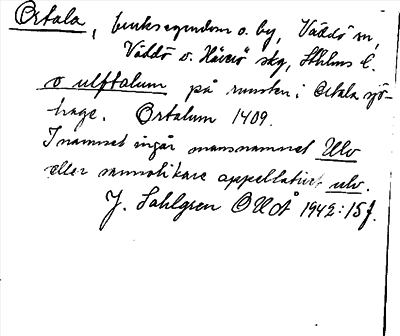 Ortala, bruksegendom o. by, Väddö sn,
Väddö o. Häverö skg, Sthlms l.
o ulftalum på runsten i Ortala sjö-
hage. Ortalum 1409.
I namnet ingår mansnamnet Ulv
eller sannolikare appellativet ulv.
J. Sahlgren OUÅ 1942:15 f.